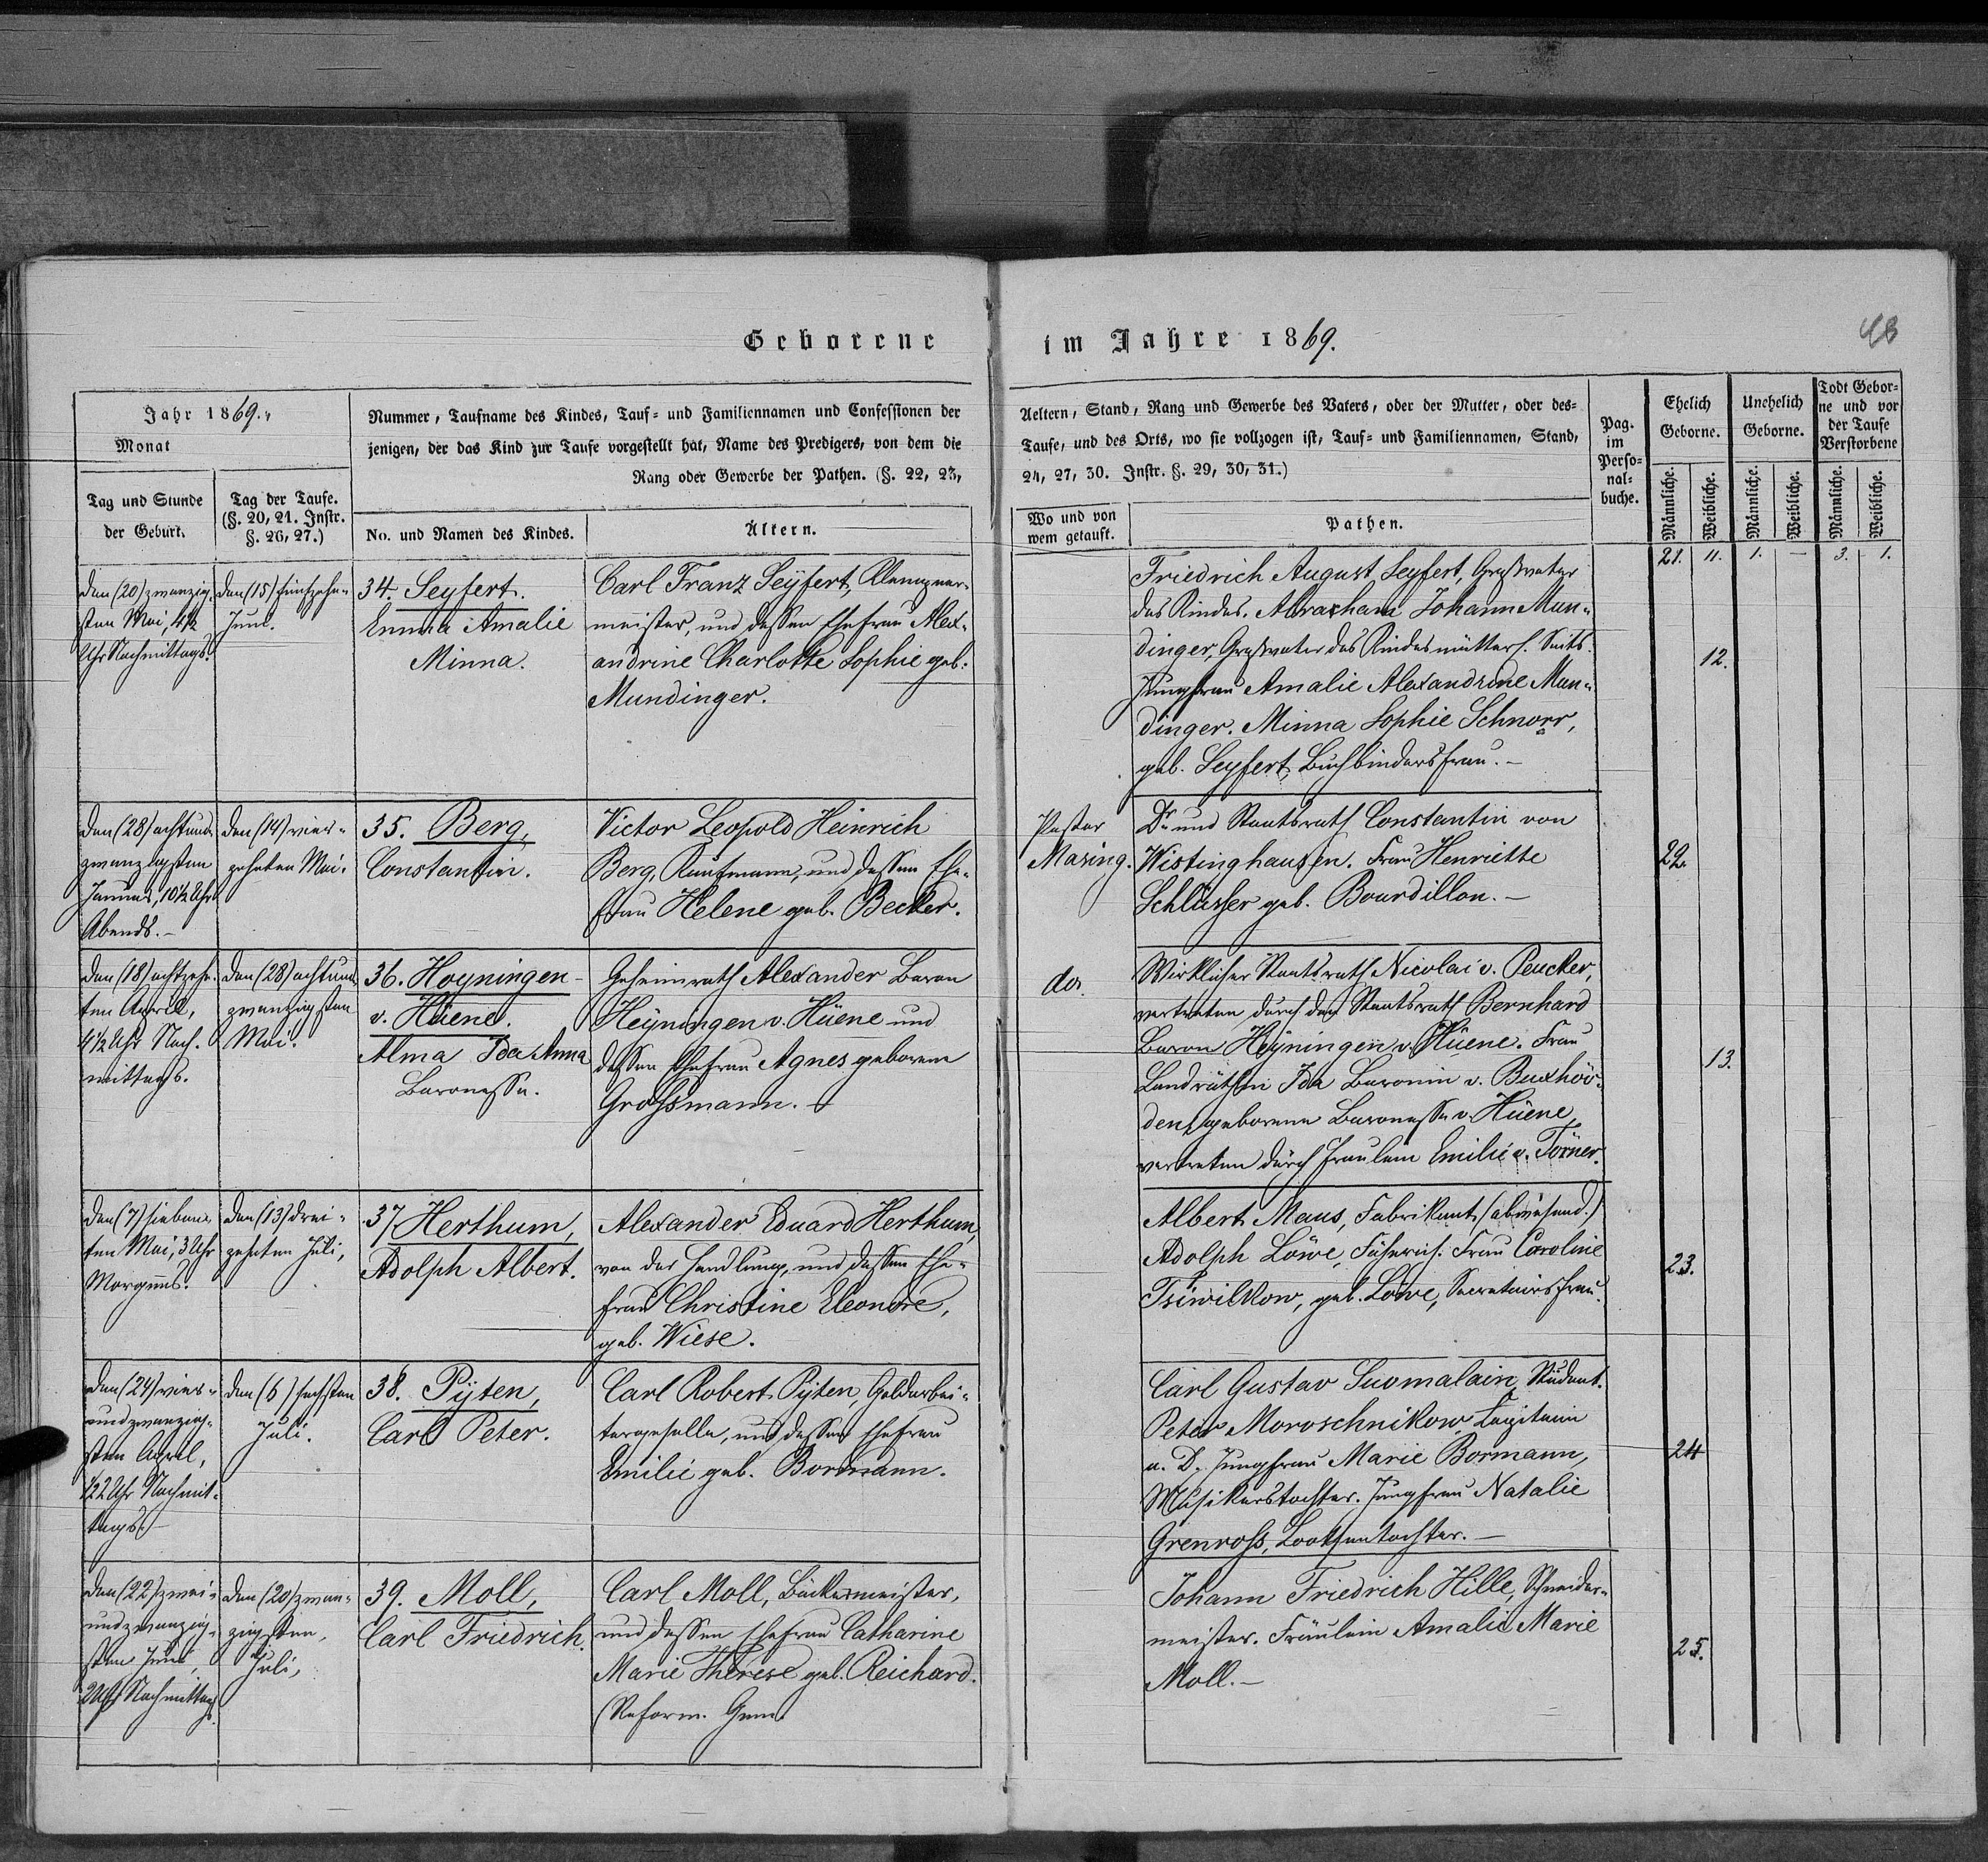 Geborene im Jahre 1869.
48
Jahr 1869.
Monat
Tag und Stunde
der Geburt.
Tag der Taufe.
(§. 20, 21. Instr.
§. 26, 27.)
Nummer, Taufname des Kindes, Tauf- und Familiennamen und Confessionen der
jenigen, der das Kind zur Taufe vorgestellt hat, Name des Predigers, von dem die
Rang oder Gewerbe der Pathen. (§. 22, 23,
No. und Namen des Kindes.
Ältern.
Aeltern, Stand, Rang und Gewerbe des Vaters, oder der Mutter, oder des-
Taufe, und des Orts, wo sie vollzogen ist, Tauf- und Familiennamen, Stand,
24, 27, 30. Instr. §. 29, 30, 31.)
Wo und von
wem getauft.
Pathen.
Pag.
im
Perso-
nal-
buche.
Ehelich
Geborne.
Unehelich
Geborne.
Todt Gebor-
ne und vor
der Taufe
Verstorbene
Männliche.
Weibliche.
Männliche.
Weibliche.
Männliche.
Weibliche.
21. 11. 1. — 3. 1.
den (20) zwanzig-
sten Mai, 4½
Uhr Nachmittags.
den (15) fünfzehn-
Juni.
34. Seyfert.
Emma Amalie
Minna.
Carl Franz Seyfert, Klempner-
meister, und dessen Ehefrau Alex-
andrine Charlotte Sophie geb.
Mundinger.
Friedrich August Seyfert, Großvater
des Kindes. Abraham Johann Mun-
dinger, Großvater des Kindes mütterl. Seits.
Jungfrau Amalie Alexandrine Mun-
dinger. Minna Sophie Schnorr,
geb. Seyfert, Buchbindersfrau. —
12.
den (28) achtund-
zwanzigsten
Januar, 10½ Uhr
Abends. —
den (14) vier-
zehnten Mai.
35. Berg,
Constantin.
Victor Leopold Heinrich
Berg, Kaufmann, und dessen Ehe-
frau Helene geb. Becker.
Pastor
Masing.
Dr. und Staatsrath Constantin von
Wistinghausen. Frau Henriette
Schlüsser geb. Bourdillon. —
22.
den (18) achtzehn-
ten April,
4½ Uhr Nach-
mittags.
den (28) achtund-
zwanzigsten
Mai.
36. Hoyningen-
v. Hüene.
Alma Ida Anna
Baronesse.
Geheimrath Alexander Baron
Heyningen v. Hüene und
dessen Ehefrau Agnes geborene
Grossmann. —
do.
Wirklicher Staatsrath Nicolai v. Peucker,
vertreten durch den Staatsrath Bernhard
Baron Heyningen v. Hüene. Frau
Landräthin Ida Baronin v. Buxhöv-
den, geborene Baronesse v. Hüene,
vertreten durch Fräulein Emilie v. Törner.
13.
den (7) sieben-
ten Mai, 3 Uhr
Morgens.
den (13) drei-
zehnten Juli,
37. Herthum,
Adolph Albert.
Alexander Eduard Herthum,
von der Handlung, und dessen Ehe-
frau Christine Eleonore,
geb. Wiese.
Albert Maus, Fabrikant, (abwesend.)
Adolph Löwe, Fähnrich. Frau Caroline
Tsiwilkow, geb. Löwe, Secretairsfrau.
23.
den (24) vier-
undzwanzig-
sten April,
½2 Uhr Nachmit-
tags. —
den (6) sechsten
Juli.
38. Pyten,
Carl Peter.
Carl Robert Pyten, Goldarbei-
tergeselle, und dessen Ehefrau
Emilie geb. Bormann.
Carl Gustav Suomalain, Student.
Peter Moroschnikow, Capitain
a. D. Jungfrau Marie Bormann,
Musikerstochter. Jungfrau Natalie
Grenross, Lootsentochter. —
24
den (22) zwei-
undzwanzig-
sten Juni,
2 Uhr Nachmittags.
den (20) zwan-
zigsten,
Juli,
39. Moll,
Carl Friedrich.
Carl Moll, Bäckermeister,
und dessen Ehefrau Catharine
Marie Therese geb. Reichard.
(Reform. Gem.
Johann Friedrich Hille, Schneider-
meister. Fräulein Amalie Marie
Moll. —
25.